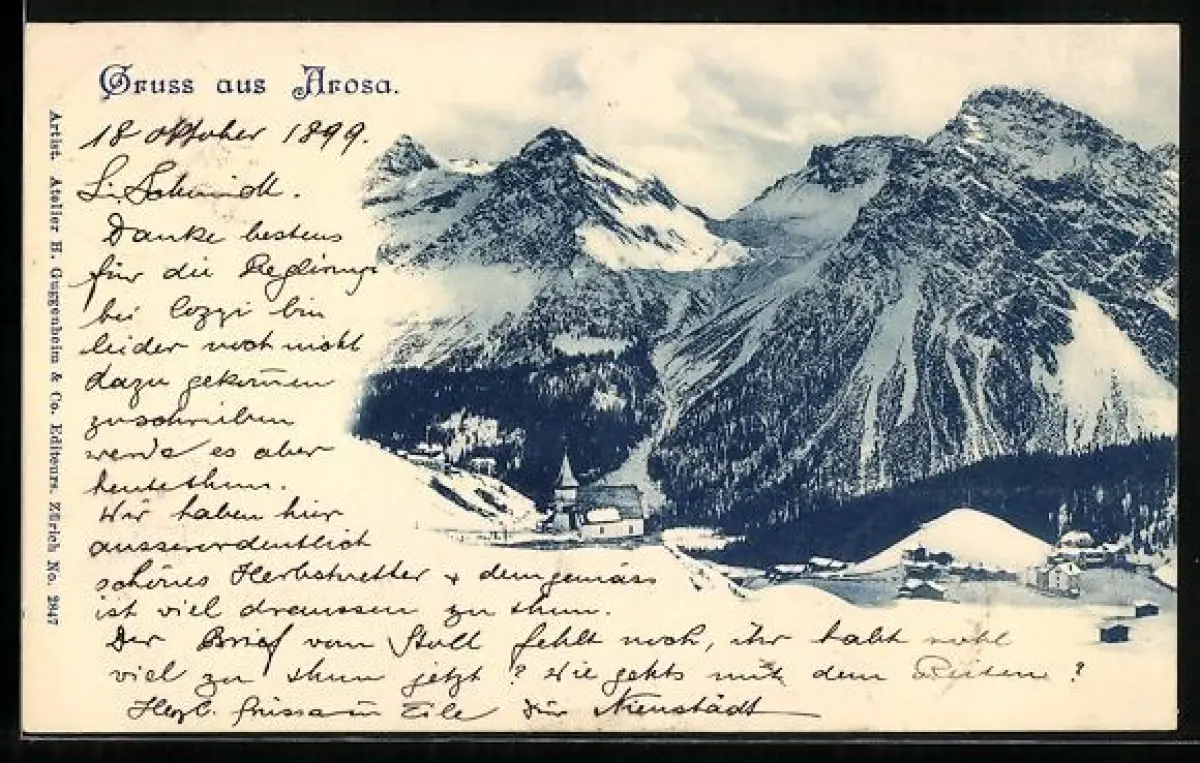 Gruss aus Arosa.
18 Oktober 1899.
L. Schmidt.
Danke bestens
für die Reglirung
bei Cozzi bin
leider noch nicht
dazu gekommen
zuschreiben
werde es aber
heute thun.
Wir haben hier
ausserordentlich
schönes Herbstwetter + demgemäss
ist viel draussen zu thun.
Der Brief vom Stoll fehlt noch, ihr habt wohl
viel zu thun jetzt? Wie gehts mit dem Reiten?
Herzl. Grüsse in Eile Neustadt
Artist. Atelier H. Guggenheim & Co. Editeurs. Zürich No. 2847